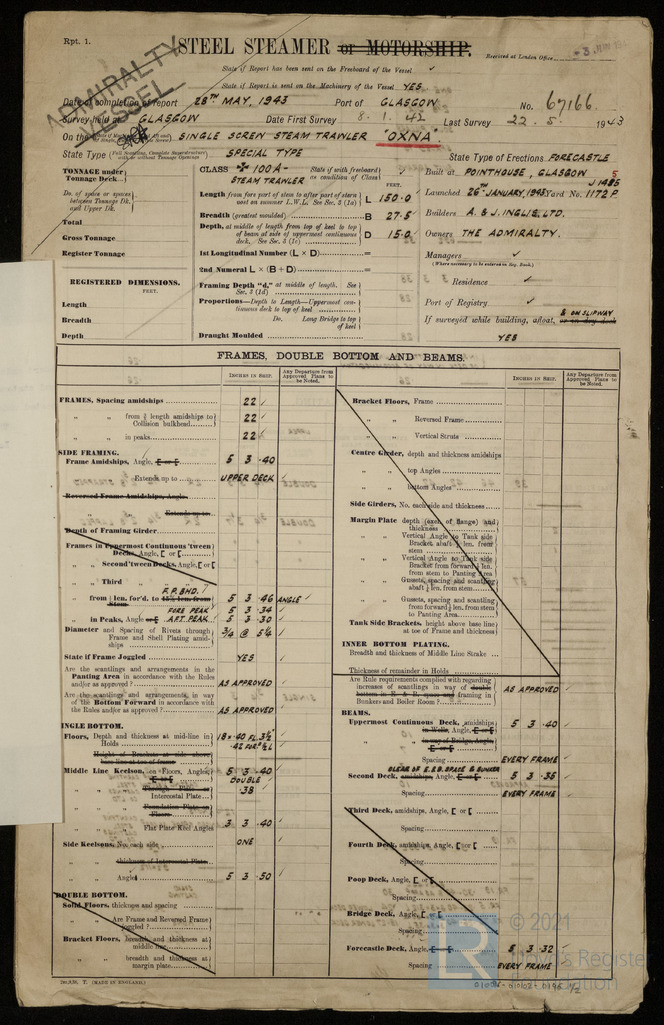 Rpt. 1.
STEEL STEAMER or MOTORSHIP.
Received at London Office
ADMIRALTY VESSEL
State if Report has been sent on the Freeboard of the Vessel ✓
State if Report is sent on the Machinery of the Vessel YES
Date of completion of report 28TH MAY, 1943 Port of GLASGOW No. 67166
Survey held at GLASGOW Date First Survey 8. 1. 42 Last Survey 22. 5. 1943
On the SINGLE SCREW STEAM TRAWLER "OXNA"
State Type (Full Scantling, Complete Superstructure with or without Tonnage Openings) SPECIAL TYPE State Type of Erections FORECASTLE
TONNAGE under Tonnage Deck
Do. of space or spaces between Tonnage Dk. and Upper Dk.
Total
Gross Tonnage
Register Tonnage
REGISTERED DIMENSIONS.
FEET.
Length
Breadth
Depth
CLASS ✠100A- State if with freeboard as condition of Class
STEAM TRAWLER
FEET.
Length from fore part of stem to after part of stern post on summer L.W.L. See Sec. 3 (1a) L 150.0
Breadth (greatest moulded) B 27.5
Depth, at middle of length from top of keel to top of beam at side of uppermost continuous deck, See Sec. 3 (1c) D 15.0
1st Longitudinal Number (L × D) =
2nd Numeral L × (B + D) =
Framing Depth "d," at middle of length. See Sec. 3 (1d)
Proportions—Depth to Length—Uppermost continuous deck to top of keel
Do. Long Bridge to top of keel
Draught Moulded
Built at POINTHOUSE, GLASGOW
Launched 26TH JANUARY, 1943 Yard No. 1172 P
Builders A. & J. INGLIS, LTD.
Owners THE ADMIRALTY.
Managers ✓
(Where necessary to be entered in Reg. Book.)
Residence ✓
Port of Registry ✓
& ON SLIPWAY
If surveyed while building, afloat, or in dry dock
YES
FRAMES, DOUBLE BOTTOM AND BEAMS.
INCHES IN SHIP.
Any Departure from Approved Plans to be Noted.
FRAMES, Spacing amidships 22
" " from ⅕ length amidships to Collision bulkhead 22
" " in peaks 22
SIDE FRAMING.
Frame Amidships, Angle, [ or [ 5 3 .40
" " Extends up to UPPER DECK
Reversed Frame Amidships, Angle
" " Extends up
Depth of Framing Girder
Frames in Uppermost Continuous 'tween Decks, Angle, [ or [
" " Second 'tween Decks, Angle, [ or [
" " Third "
F.P. BHD.
" from ¼ len. for'd. to 15% len. from Stem 5 3 .46 ANGLE
FORE PEAK 5 3 .34
" in Peaks, Angle or [ AFT. PEAK 5 3 .30
Diameter and Spacing of Rivets through Frame and Shell Plating amidships 3/4 @ 5 1/4
State if Frame Joggled YES
Are the scantlings and arrangements in the Panting Area in accordance with the Rules and/or as approved? AS APPROVED
Are the scantlings and arrangements, in way of the Bottom Forward in accordance with the Rules and/or as approved? AS APPROVED
INGLE BOTTOM.
Floors, Depth and thickness at mid-line in Holds 18 × .40 FL. 3½"
.42 FOR'D ⅗ L
Height of Brackets at side above base line at toe of frame
Middle Line Keelson, on Floors, Angles, [ or [ 5 3 .40
DOUBLE
" " Through Plate or Intercostal Plate .38
" " Foundation Plate on Floors
" " Flat Plate Keel Angles 3 3 .40
Side Keelsons, No. each side ONE
" " thickness of Intercostal Plate
" " Angles 5 3 .50
DOUBLE BOTTOM.
Solid Floors, thickness and spacing
" " Are Frame and Reversed Frame joggled?
Bracket Floors, breadth and thickness at middle line
" " breadth and thickness at margin plate
INCHES IN SHIP.
Any Departure from Approved Plans to be Noted.
Bracket Floors, Frame
" " Reversed Frame
" " Vertical Struts
Centre Girder, depth and thickness amidships
" " top Angles
" " bottom Angles
Side Girders, No. each side and thickness
Margin Plate depth (excl. of flange) and thickness
" " Vertical Angle to Tank side Bracket abaft ¼ len. from stem
" " Vertical Angle to Tank side Bracket from forward ¼ len. from stem to Panting Area
" " Gussets, spacing and scantling abaft ¼ len. from stem
" " Gussets, spacing and scantling from forward ¼ len. from stem to Panting Area
Tank Side Brackets, height above base line at toe of Frame and thickness
INNER BOTTOM PLATING.
Breadth and thickness of Middle Line Strake
Thickness of remainder in Holds
Are Rule requirements complied with regarding increases of scantlings in way of double bottom in framing in Bunkers and Boiler Room? AS APPROVED
BEAMS.
Uppermost Continuous Deck, amidships 5 3 .40
" " in Wells, Angle, [ or [
" " in way of Bridge, Angle, [ or [
Spacing EVERY FRAME
CLEAR OF E. & B. SPACE & BUNKER
Second Deck, amidships, Angle, [ or [ 5 3 .35
Spacing EVERY FRAME
Third Deck, amidships, Angle, [ or [
Spacing
Fourth Deck, amidships, Angle, [ or [
Spacing
Poop Deck, Angle, [ or [
Spacing
Bridge Deck, Angle, [ or [
Spacing
Forecastle Deck, Angle, [ or [ 5 3 .32
Spacing EVERY FRAME
(MADE IN ENGLAND.)
© 2021
Lloyd's Register
Foundation